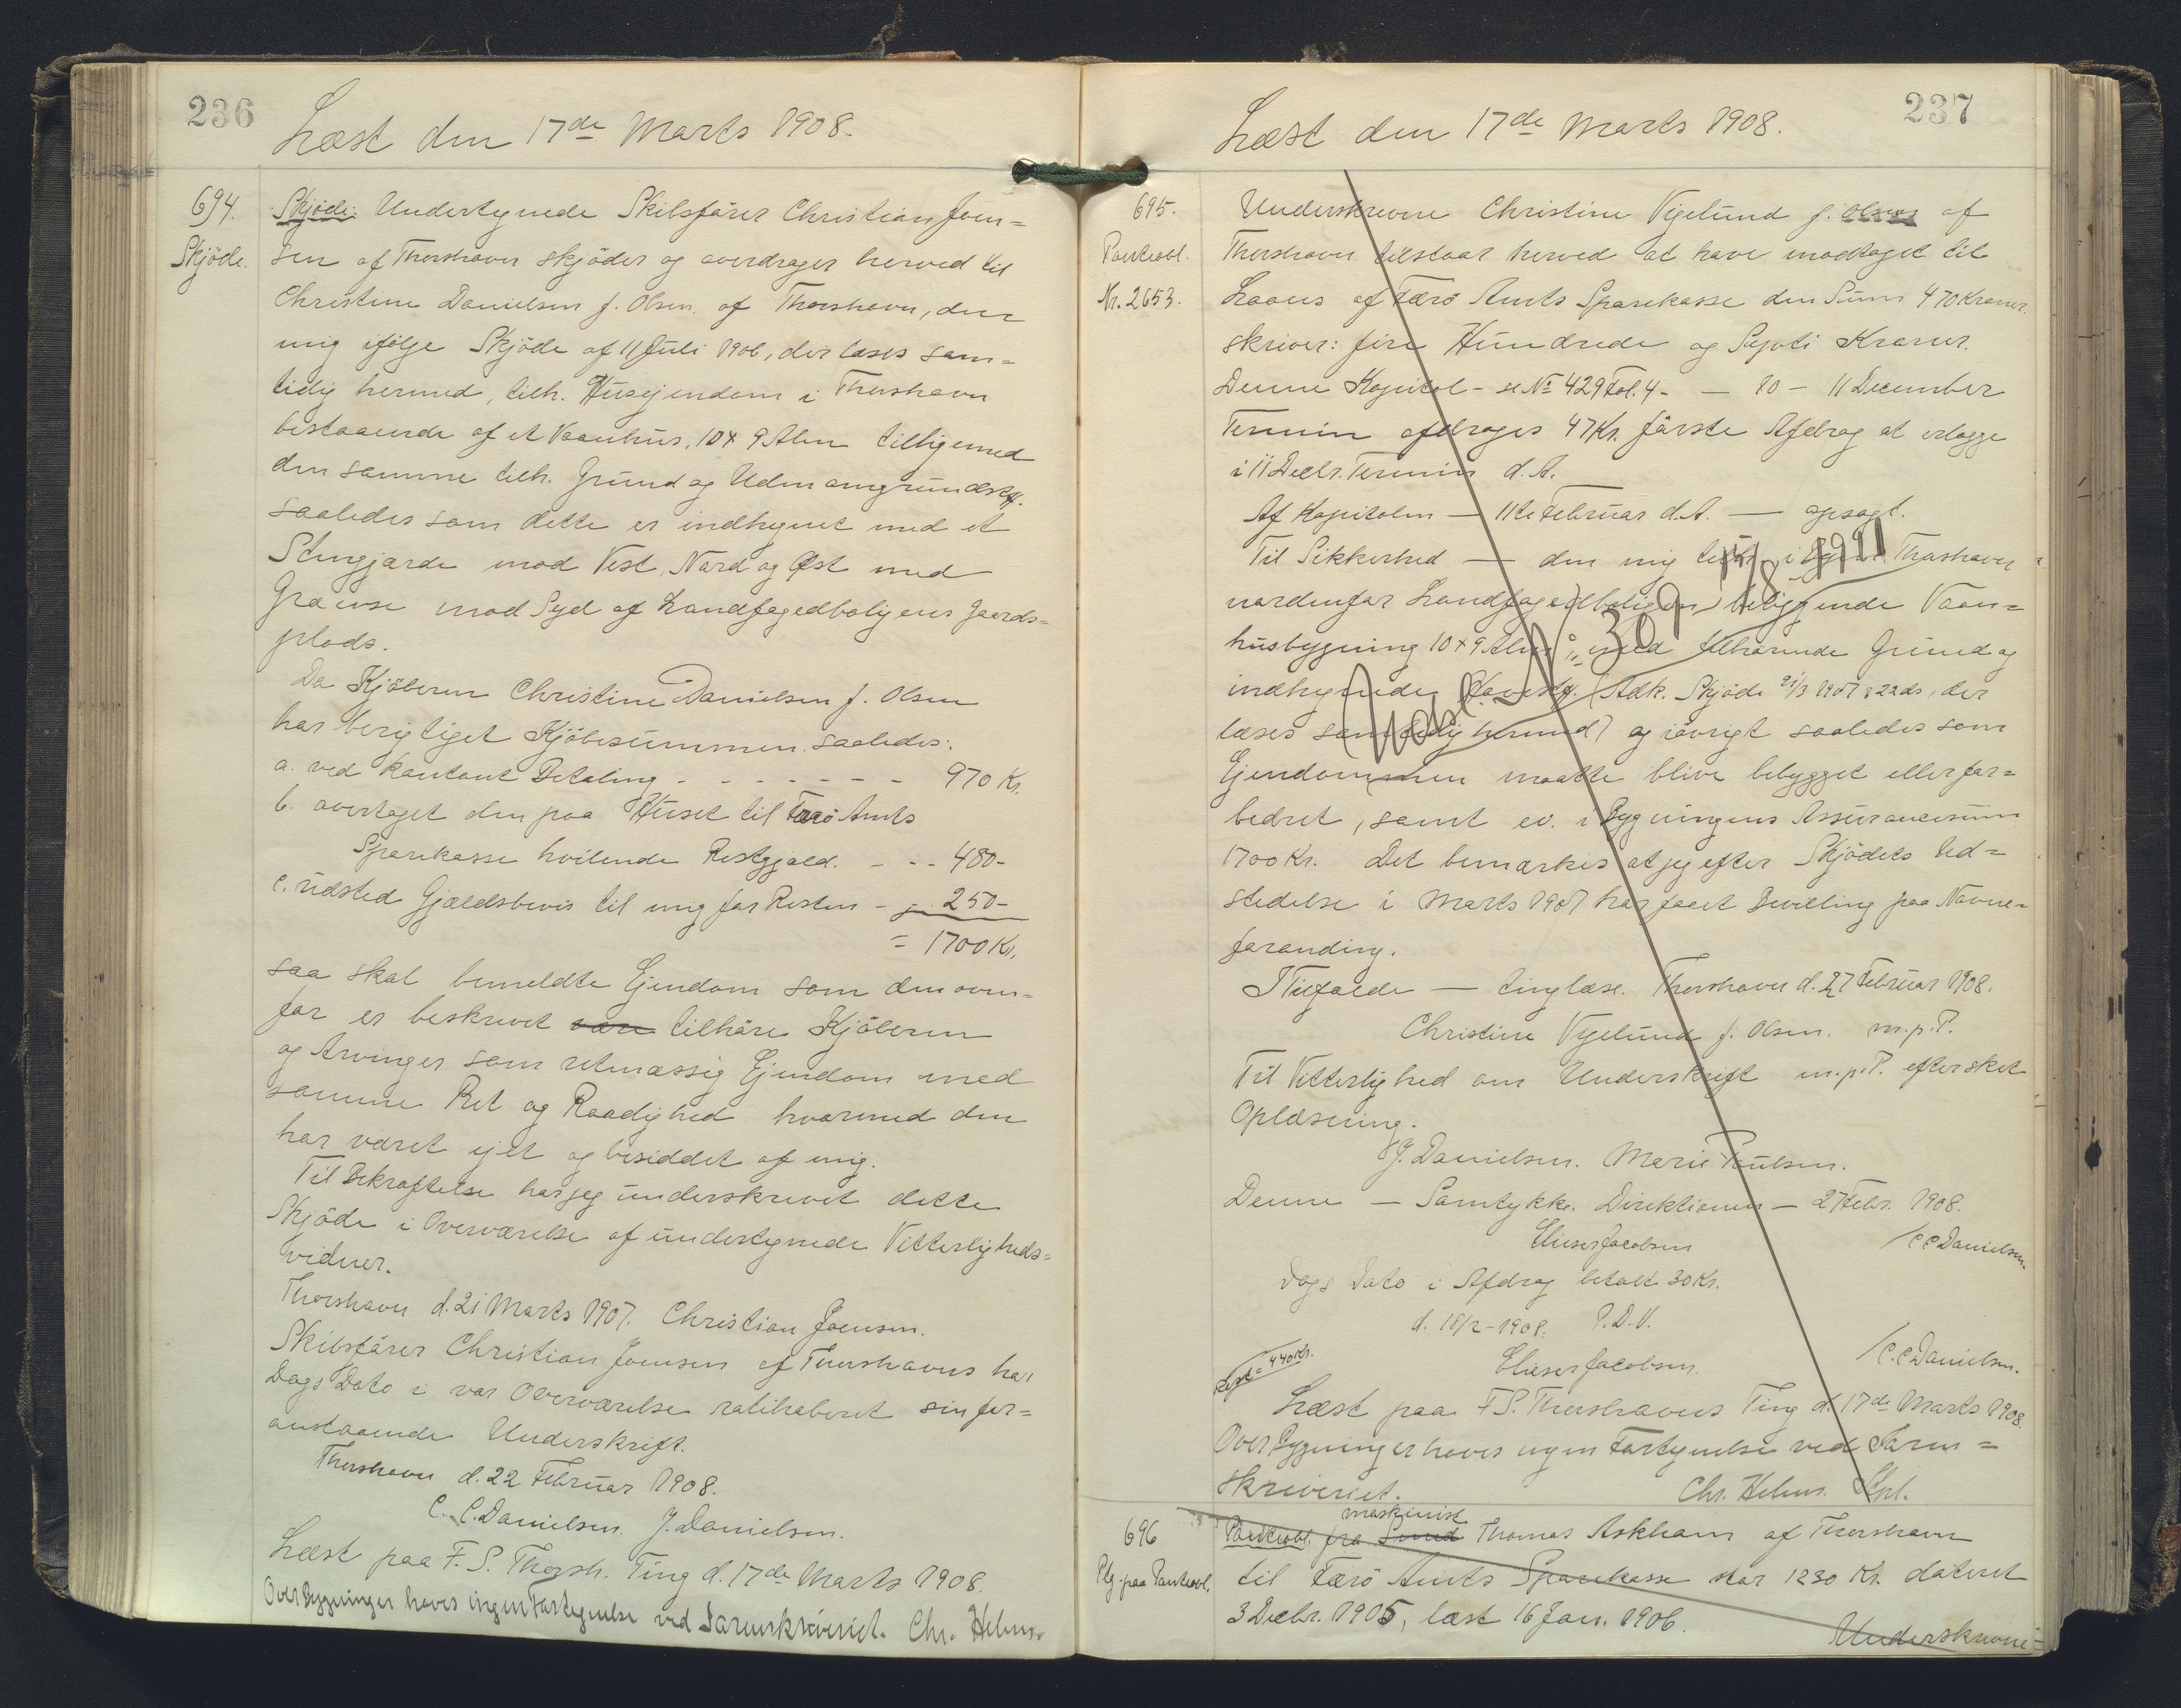 236
Læst den 17de Marts 1908.
694.
Skjöde.
Skjöde: Undertegnede Skibsfører Christian Joen=
sen af Thorshavn skjöder og overdrager herved til
Christine Danielsen f. Olsen af Thorshavn, den
mig ifölge Skjöde af 11 Juli 1906, der læses sam=
tidig hermed, tilh. Husejendom i Thorshavn
bestaaende af et Vaanhus, 10 x 9 Alen tilligemed
den samme tilh. Grund og Udmarsgrundstk.
saaledes som dette er indhegnet med et
Stengjærde mod Vest, Nord og Øst med
Grænse mod Syd af Landfogedboligens Gaards=
plads.
Da Kjöberen Christine Danielsen f. Olsen
har berigtiget Kjöbesummen saaledes:
a. ved kontant Betaling - - - - - - - 970 Kr.
b. overtaget den paa Huset til Færö Amts
Sparekasse hvilende Restgjæld. - - - 480-
c. udsted Gjældsbevis til mig for Resten - - 250-
= 1700 Kr.
saa skal bemeldte Ejendom som den oven=
for er beskrevet være tilhöre Kjöberen
og Arvinger som retmæssig Ejendom med
samme Ret og Raadighed hvormed den
har været ejet og besiddet af mig.
Til Bekræftelse har jeg underskrevet dette
Skjöde i Overværelse af undertegnede Vitterligheds=
vidner.
Thorshavn d. 21 Marts 1907. Christian Joensen.
Skibsfører Christian Joensen af Thorshavn har
Dags Dato i vor Overværelse ratihaberet sin for=
anstaaende Underskrift.
Thorshavn d. 22 Februar 1908.
C. C. Danielsen. J. Danielsen.
Læst paa F. S. Thorsh. Ting d. 17de Marts 1908.
Over Bygninger haves ingen Fortegnelse ved Sorenskriveriet. Chr. Helms.
237
Læst den 17de Marts 1908.
695.
Panteobl.
Nr. 2653.
Underskrevne Christine Vigelund f. Olsen af
Thorshavn tilstaar herved at have modtaget til
Laans af Færö Amts Sparekasse den Sum 470 Kroner.
skriver: fire Hundrede og Syvti Kroner.
Denne Kapital - se No 429 Fol. 4 - — 10 - 11 December
Termin afdrages 47 Kr. første Afdrag at erlægge
i 11 Decbr. Termin d. A.
Af Kapitalen — 11te Februar d. A. — opsagt.
Til Sikkerhed — den mig tilh. i Thorshavn
nordenfor Landfogedboligen beliggende Vaan=
husbygning 10 x 9 Alen med tilhörende Grund og
indhegnede Havestk. (Adk. Skjöde 21/3 1907 & 22 ds, der
læses samtidig hermed) og iövrigt saaledes som
Ejendommen maatte blive bebygget eller for=
bedret, samt ev. i Bygningens Assurancesum
1700 Kr. Det bemærkes at jeg efter Skjödets Ud=
stedelse i Marts 1907 har faaet Bevilling paa Navne=
forandring.
I Tilfælde — tinglæse. Thorshavn d. 27 Februar 1908.
Christine Vigelund f. Olsen. m. p. P.
Til Vitterlighed om Underskrift m. p. P. efter sket
Oplæsning.
J. Danielsen. Marie Poulsen.
Denne — Samtykke. Direktionen — 27 Febr. 1908.
Elieser Jacobsen
/C C Danielsen.
Dags Dato i Afdrag betalt 30 Kr.
d. 18/2 - 1908. P. D. V.
Rest = 440 Kr.
Elieser Jacobsen.
/C. C. Danielsen.
Læst paa F. S. Thorshavns Ting d. 17de Marts 1908.
Over Bygninger haves ingen Fortegnelse ved Soren=
skriveriet.
Chr. Helms.
696
Plg. paa Panteobl.
maskinist
Panteobl. fra Smed Thomas Askham af Thorshavn
til Færö Amts Sparekasse stor 1230 Kr. dateret
3 Decbr. 1905, læst 16 Jan. 1906.
Underskrevne=